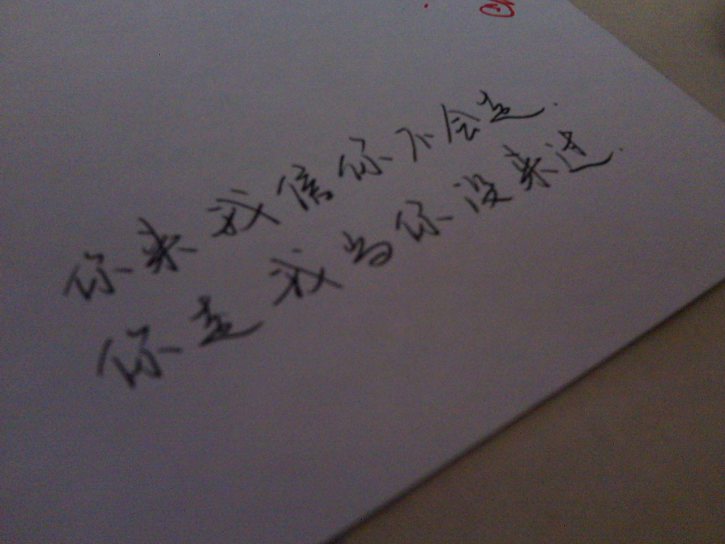 你来我信你不会走.
你走我当你没来过.